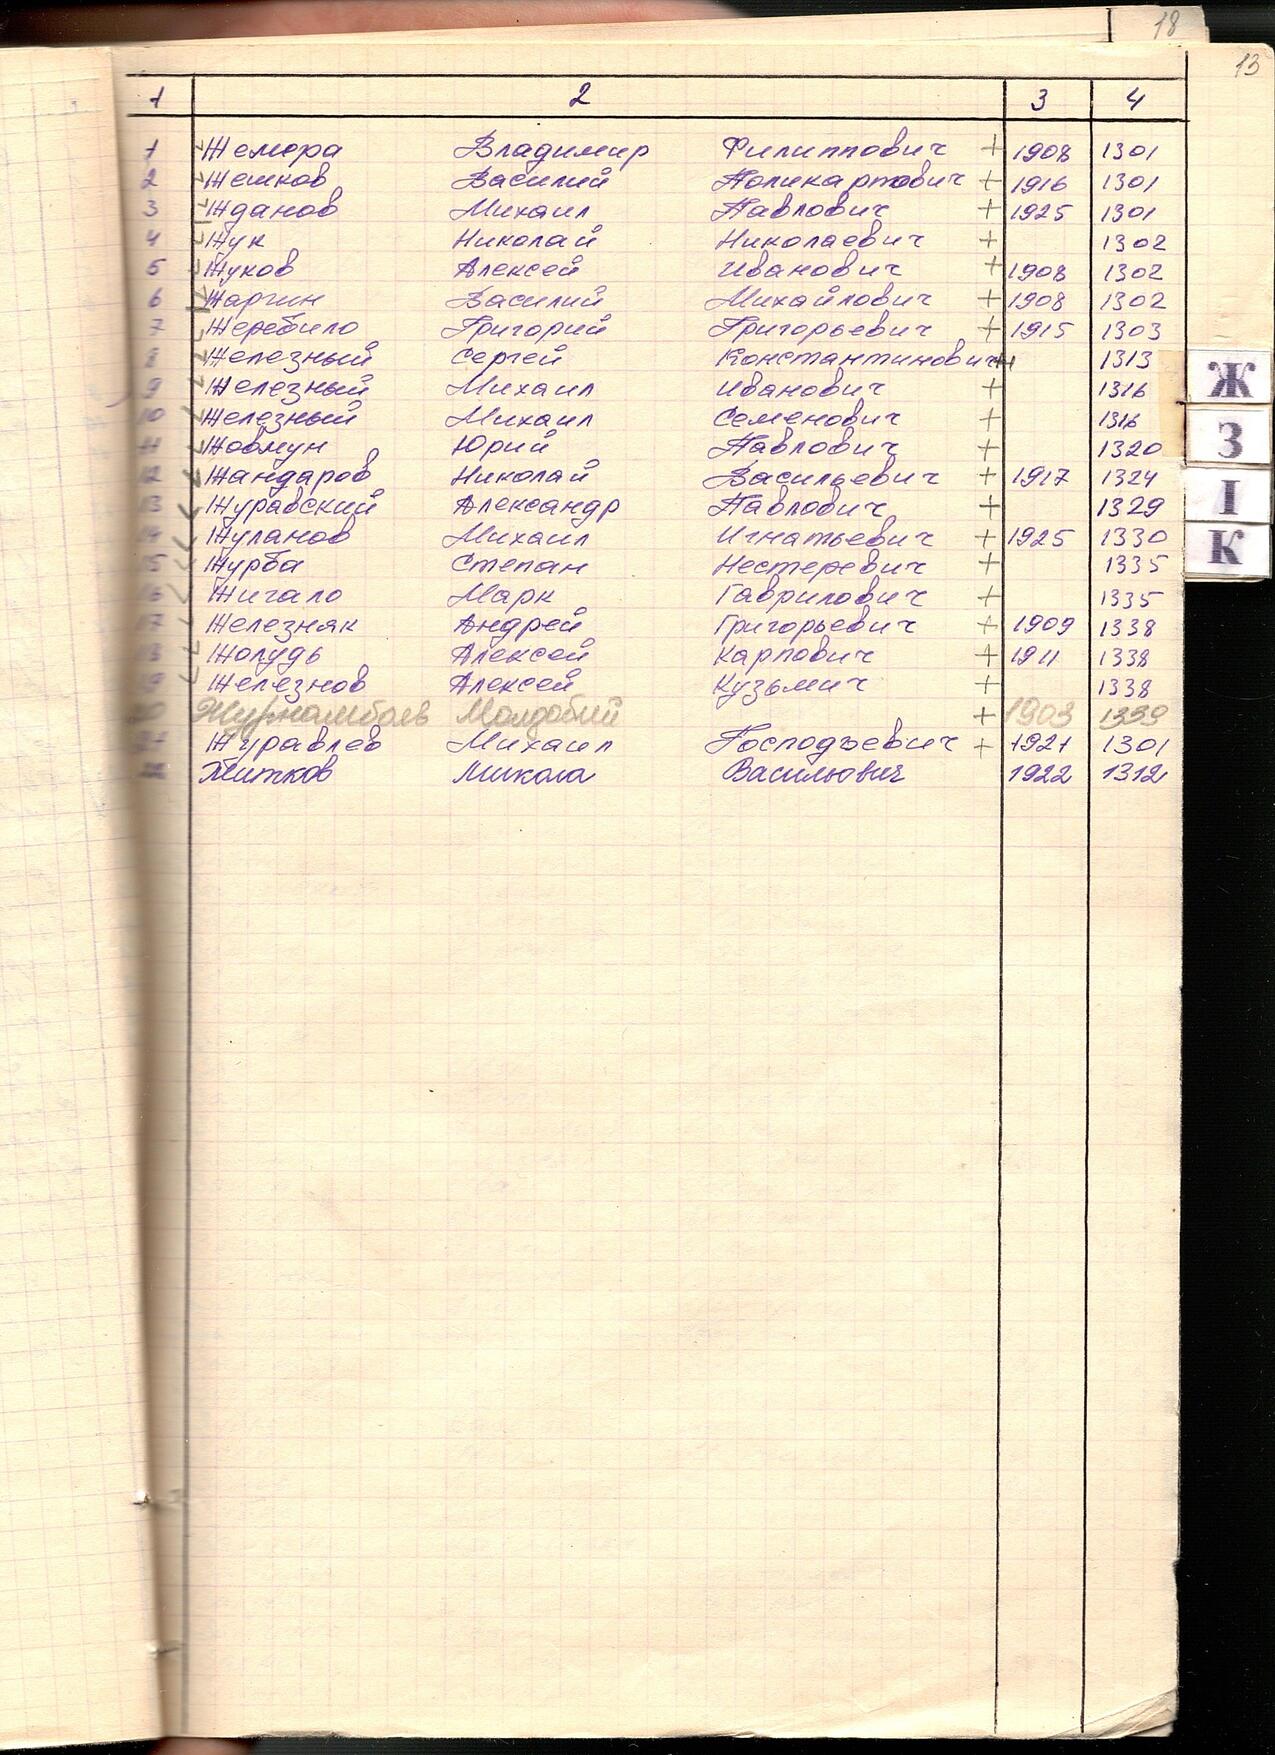 18
13
1 2 3 4
1 Жемера Владимир Филиппович + 1908 1301
2 Жешков Василий Поликарпович + 1916 1301
3 Жданов Михаил Павлович + 1925 1301
4 Жук Николай Николаевич + 1302
5 Жуков Алексей Иванович + 1908 1302
6 Жаргин Василий Михайлович + 1908 1302
7 Жеребило Григорий Григорьевич + 1915 1303
8 Железный Сергей Константинович + 1313
9 Железный Михаил Иванович + 1316
10 Железный Михаил Семенович + 1316
11 Жовмун Юрий Павлович + 1320
12 Жандаров Николай Васильевич + 1917 1324
13 Журавский Александр Павлович + 1329
14 Жуланов Михаил Игнатьевич + 1925 1330
15 Журба Степан Нестеревич + 1335
16 Жигало Марк Гаврилович + 1335
17 Железняк Андрей Григорьевич + 1909 1338
18 Жолудь Алексей Карпович + 1911 1338
19 Железнов Алексей Кузьмич + 1338
20 Журнамбаев Молдобий + 1903 1339
21 Журавлев Михаил Господъевич + 1921 1301
22 Житков Микола Васильович 1922 1312
Ж
З
І
К